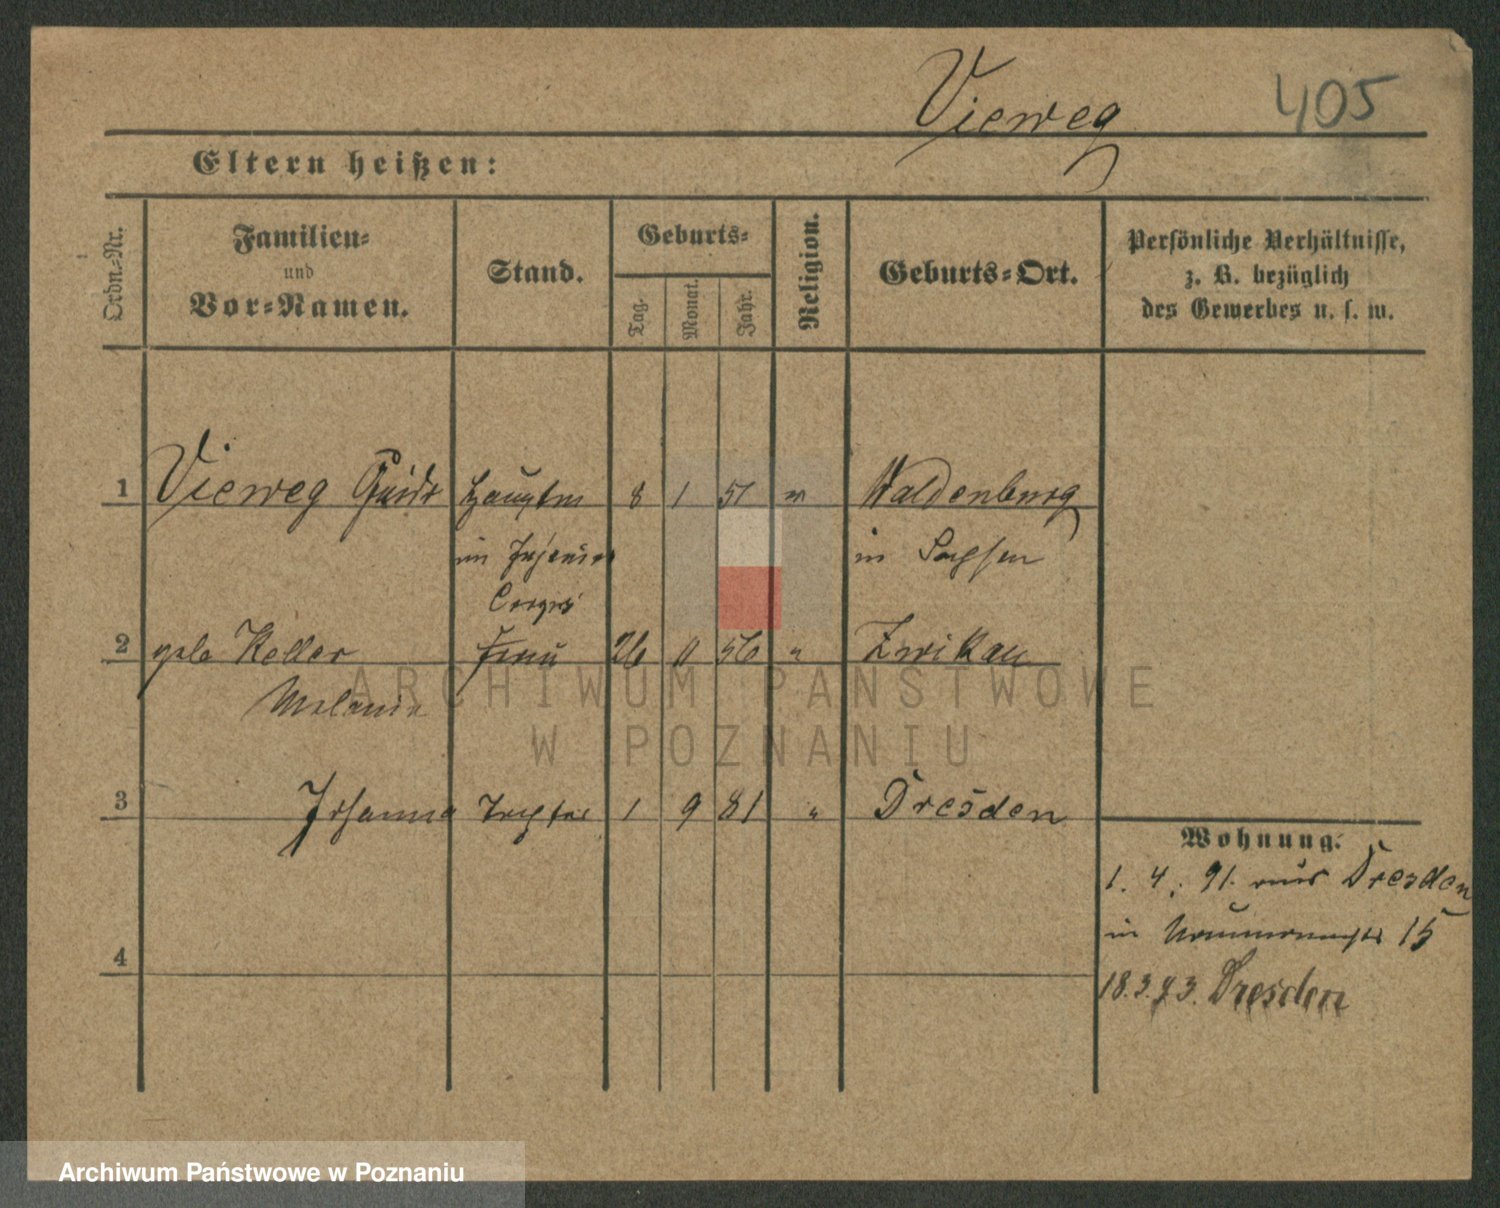 Vieweg 405
Eltern heißen:
Ordn.-Nr.
Familien-
und
Vor-Namen.
Stand.
Geburts-
Tag.
Monat.
Jahr.
Religion.
Geburts-Ort.
Persönliche Verhältnisse,
z. B. bezüglich
des Gewerbes u. s. w.
1 Vieweg Guido Hauptm 8 1 51 Waldenburg
im Ingenieur in Sachsen
Corps
2 geb Keller Frau 26 56 " Zwikau
Melanie
3 Johanna Tochter 1 9 81 " Dresden
Wohnung.
1. 4. 91. aus Dresden
in 15
4
18. 3. 93. Dresden
ARCHIWUM PAŃSTWOWE
W POZNANIU
Archiwum Państwowe w Poznaniu